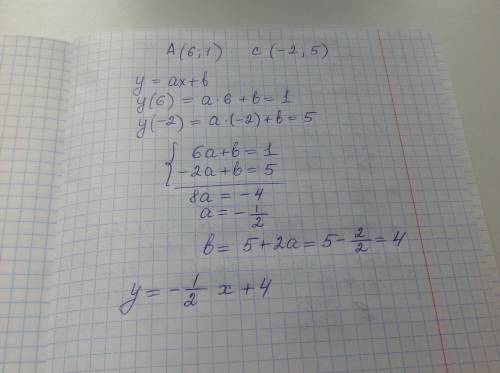 A(6;1) C(-2,5)
y = ax+b
y(6) = a·6+b=1
y(-2) = a·(-2)+b=5
{ 6a+b=1
-2a+b=5
8a = -4
a = -1/2
b = 5+2a = 5-2/2 = 4
y = -1/2 x+4